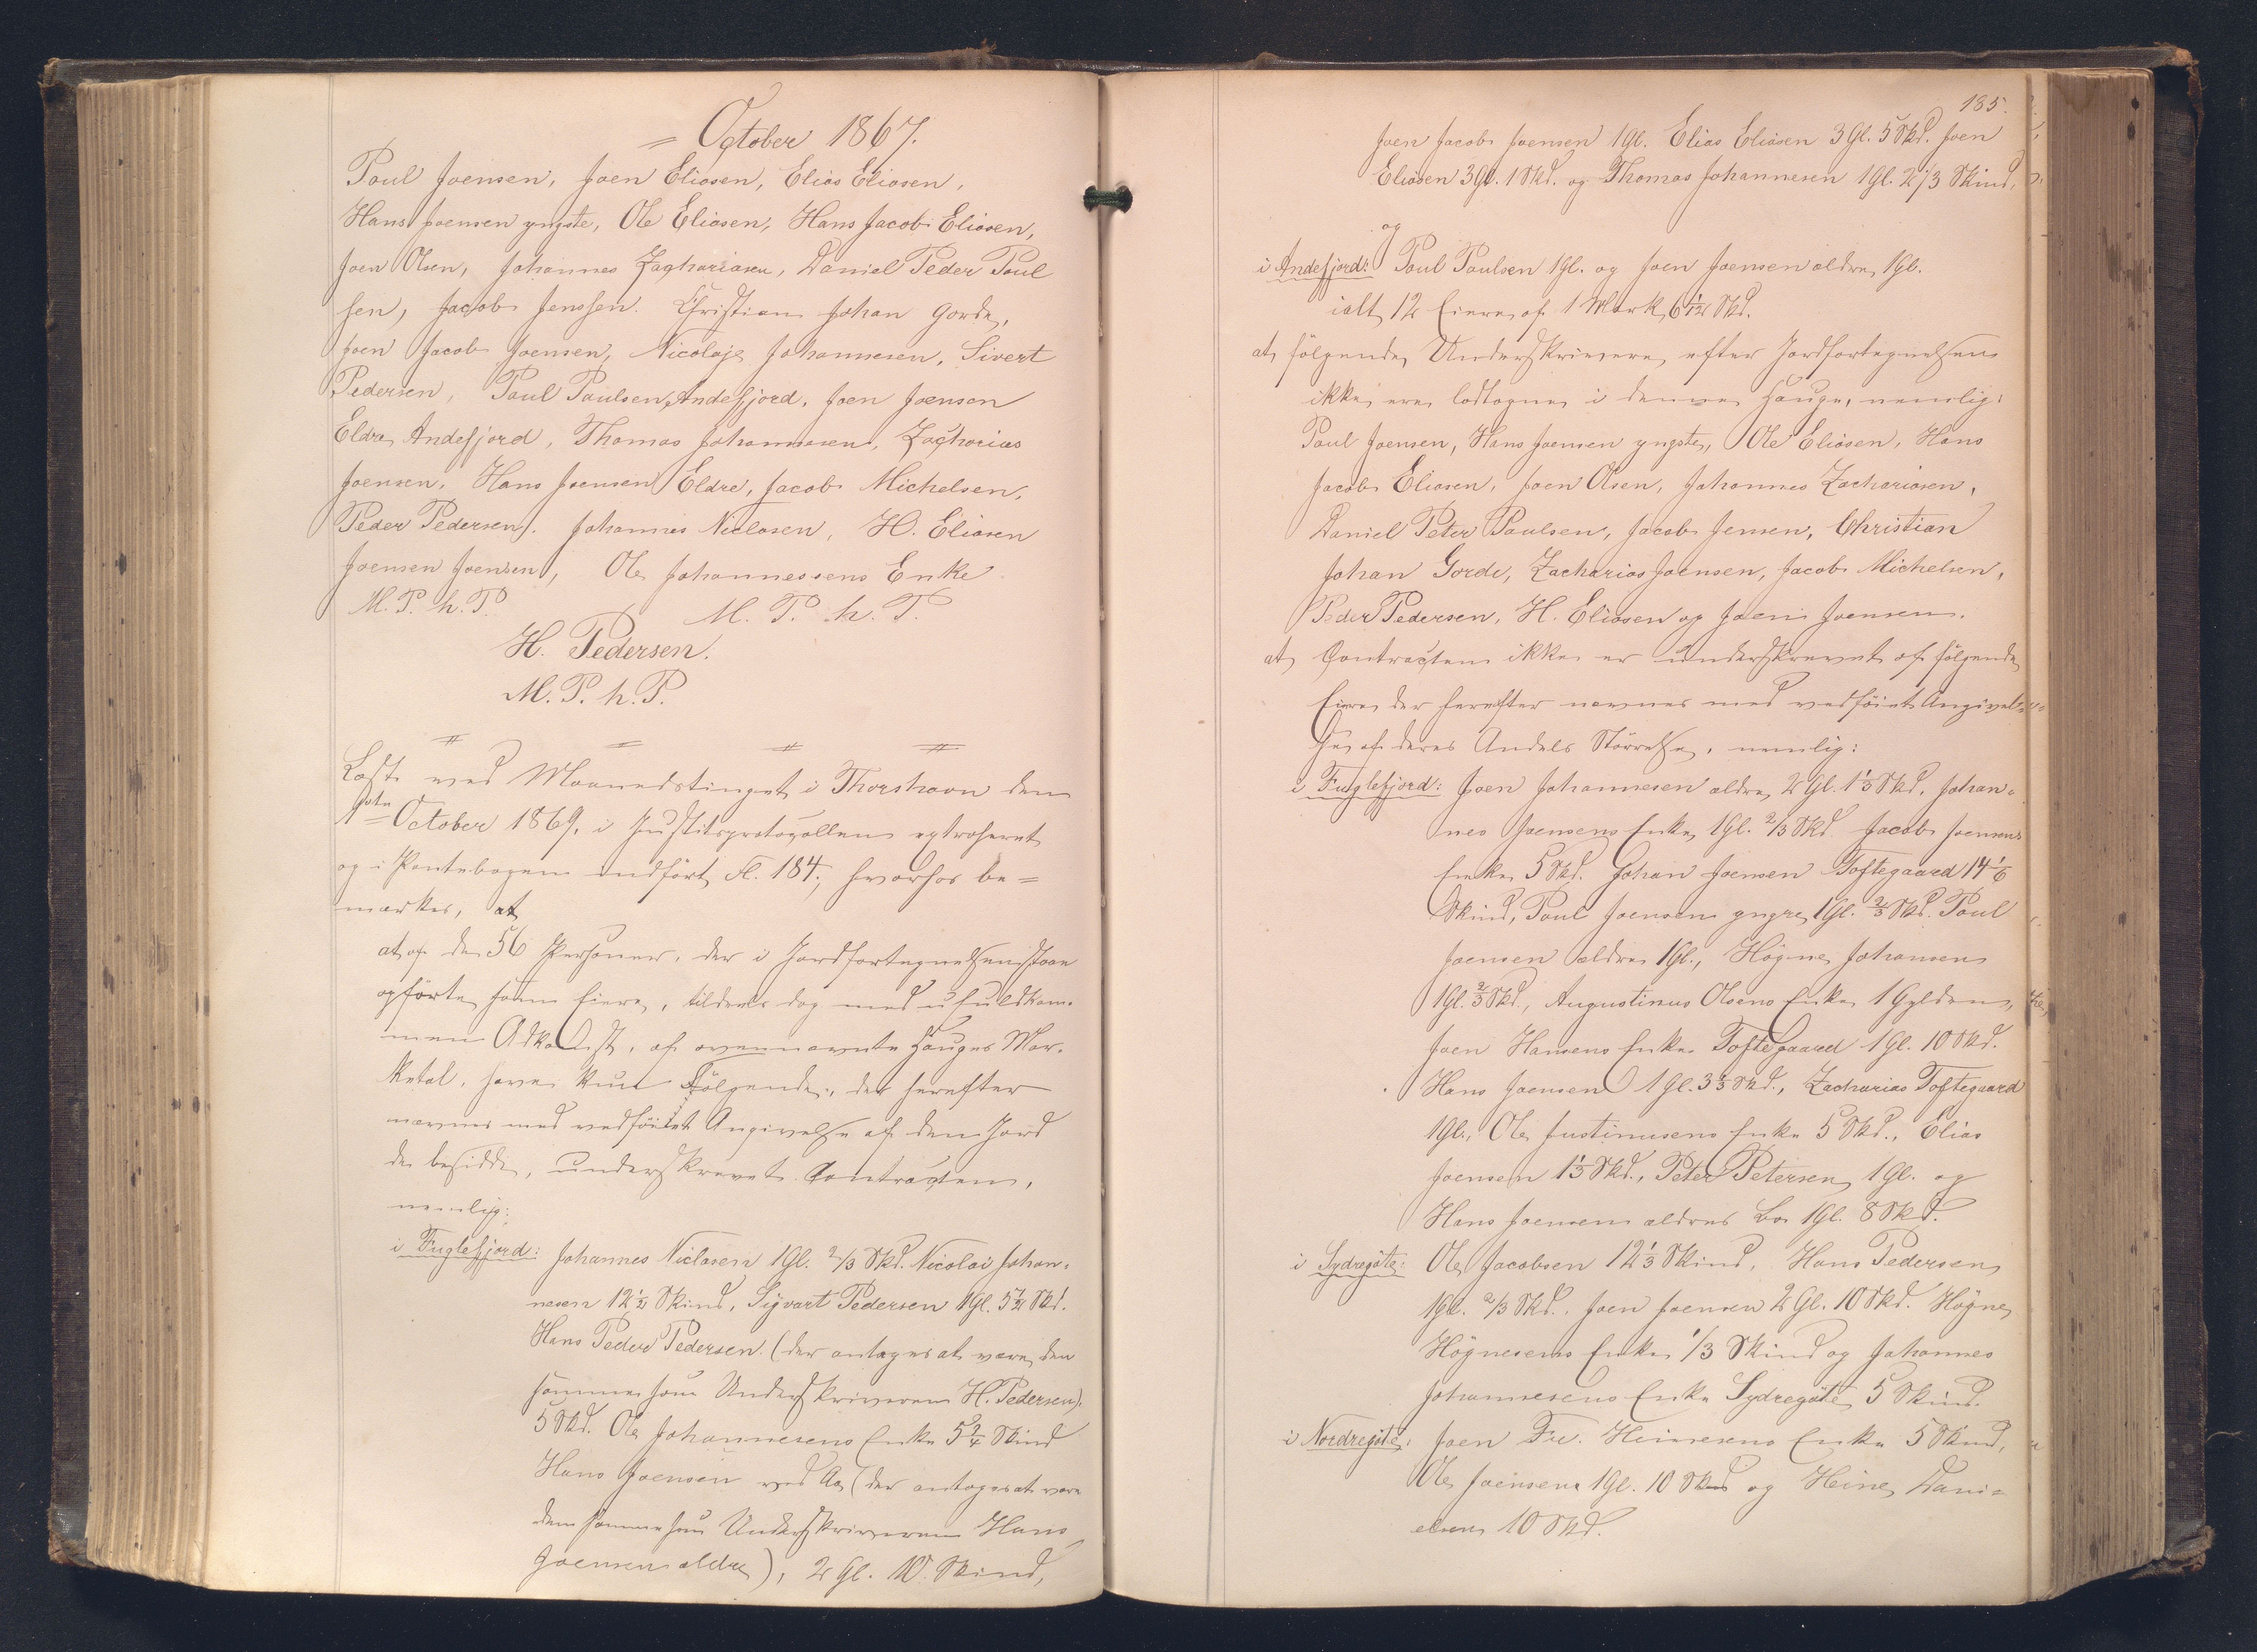 = October 1867.
Poul Joensen, Joen Eliasen, Elias Eliasen,
Hans Joensen yngste, Ole Eliasen, Hans Jacob Eliasen,
Joen Olsen, Johannes Zachariasen, Daniel Peder Poul
sen, Jacob Jenssen. Christian Johan Gorde,
Joen Jacob Joensen, Nicolaje Johannesen, Sivert
Pedersen, Poul Poulsen Andefjord, Joen Joensen
Eldre Andefjord, Thomas Johannesen, Zacharias
Joensen, Hans Joensen Eldre, Jacob Michelsen,
Peder Pedersen. Johannes Niclasen, H. Eliasen
Joensen Joensen, Ole Johannessens Enke
M. P. h. P. M. P. h. P.
H. Pedersen.
M. P. h. P.
Læst ved Maanedstinget i Thorshavn den
October 1869, i Justitsprotocollen extraheret
og i Pantebogen indført Fl. 184, hvorhos be=
mærkes, at
at af de 56 Personer, der i Jordfortegnelsen staae
opførte som Eiere, tildeels dog med ufuldkom-
men Adkomst, af ovennævnte Hauges Mar-
ketal, have kun følgende, der herefter
nævnes med vedføiet Angivelse af den Jord
de besidde, underskrevet Contracten,
nemlig:
i Fuglefjord: Johannes Niclasen 1 Gl. 2/3 Skd. Nicolai Johan-
nesen 12½ Skind, Sigvart Pedersen 1 Gl. 5½ Skd.
Hans Peder Pedersen (der antages at være den
samme som Underskriveren H. Pedersen).
5 Skd. Ole Johannesens Enke 5¾ Skind
Hans Joensen ved Aa (der antages at være
den samme som Underskriveren Hans
Joensen ældre), 2 Gl. 10 Skind,
185.
Joen Jacob Joensen 1 Gl. Elias Eliasen 3 Gl. 5 Skd. Joen
Eliasen 3 Gl. 1 Skd. og Thomas Johannesen 1 Gl. 2 1/3 Skind,
og
i Andefjord: Poul Poulsen 1 Gl. og Joen Joensen ældre 1 Gl.
ialt 12 Eiere af 1 Mark 6 1/12 Skd.
at følgende Underskrivere efter Jordfortegnelsen
ikke ere lodtagne i denne Hauge, nemlig:
Poul Joensen, Hans Joensen yngste, Ole Eliasen, Hans
Jacob Eliasen, Joen Olsen, Johannes Zachariasen,
Daniel Peter Poulsen, Jacob Jensen, Christian
Johan Gorde, Zacharias Joensen, Jacob Michelsen,
Peder Pedersen, H. Eliasen og Joen Joensen.
at Contracten ikke er underskrevet af følgende
Eiere der herefter nævnes med vedføiet Angivel-
se af deres Andels Størrelse, nemlig:
i Fuglefjord: Joen Johannesen ældre 2 Gl. 1⅓ Skd. Johan-
nes Joensens Enke 1 Gl. 2/3 Skd. Jacob Joensens
Enke 5 Skd. Johan Joensen Toftegaard 14 1/6
Skind, Poul Joensen yngre 1 Gl. ⅔ Skd. Poul
Joensen ældre 1 Gl., Høgne Johansen
1 Gl. ⅔ Skd., Augustinus Olsens Enke 1 Gylden,
Joen Hansens Enke Toftegaard 1 Gl. 10 Skd.
Hans Joensen 1 Gl. 3⅓ Skd., Zacharias Toftegaard
1 Gl., Ole Justinusens Enke 5 Skd., Elias
Joensen 1⅓ Skd., Peter Petersen 1 Gl. og
Hans Joensen ældres Bo 1 Gl. 8 Skd.
i Sydregøte: Ole Jacobsen 12⅓ Skind, Hans Pedersen
1 Gl. 2/3 Skd. Joen Joensen 2 Gl. 10 Skd. Høgne
Høgnesens Enke 1/3 Skind og Johannes
Johannesens Enke Sydregøte 5 Skind.
i Nordregøte: Joen Fr. Heinesens Enke 5 Skind,
Ole Joensen 1 Gl. 10 Skd og Heine Dani=
elsen 10 Skd.